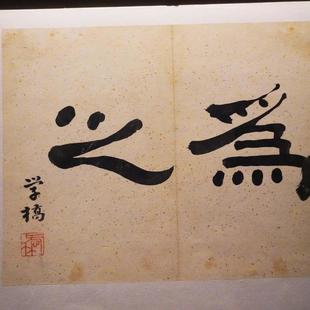 為之
学橋